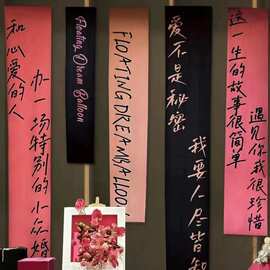 和心爱的人
办一场特别的小众婚
Floating Dream Balloon
FLOATINGDREAMBALLOON
爱不是秘密
我要人尽皆知
这一生的故事很简单
遇见你我很珍惜